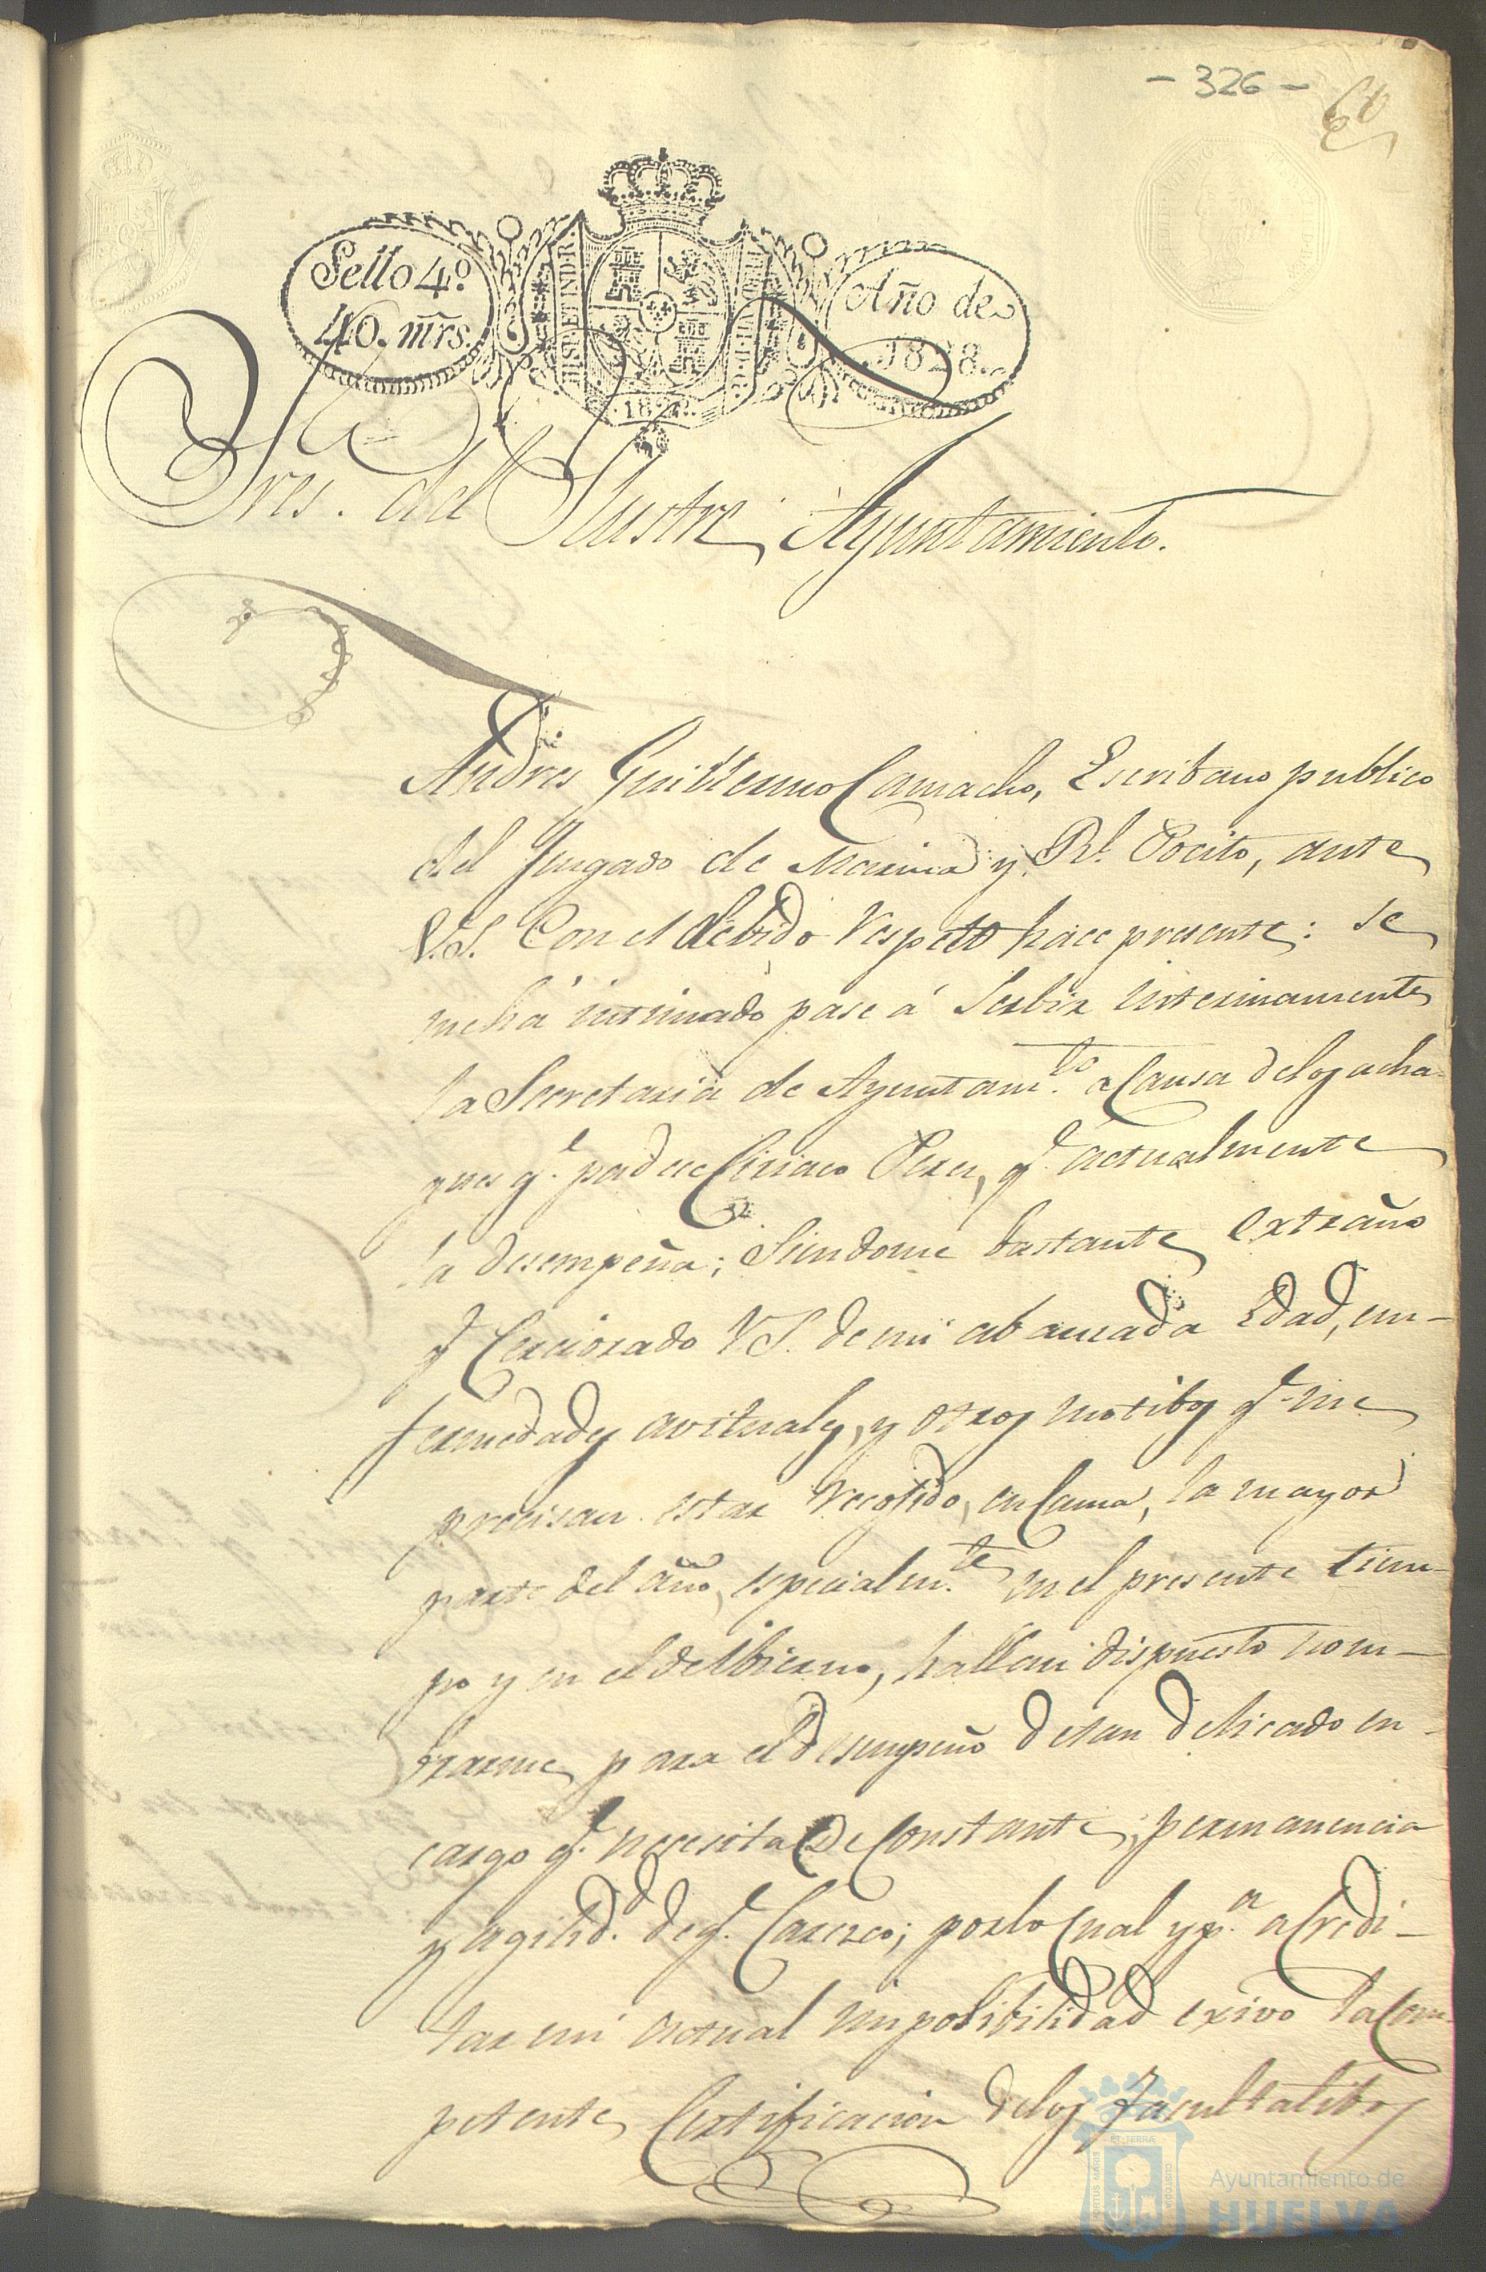 - 326 -
60
Sello 4.º
40. mrs.
HISP. ET IND. R.
Año de
1828.
1828.
Sres. del Ilustre Ayuntamiento.
Andres Guillermo Camacho, Escribano publico
del Jusgado de Marina y Rl. Pocito, ante
V.S. Con el debido respeto hace presente: se
me há intimado pase á Serbir interinamente
la Secretaria de Ayuntam.to a Causa delos acha-
ques q.e padece Ciriaco Perez, q.e actualmente
la desempeña; Siendome bastante extraño
q.e Cerciorado V.S. de mi abansada Edad, en-
fermedades avituales, y otros motibos q.e me
precisan estar recojido, en Cama, la mayor
parte del año, especialm.te en el presente tiem-
po y en el del Ibierno, hallan dispuesto nom-
brarme para el desempeño de tan delicado en-
cargo q.e necesita de Constante, permanencia
y agilid.d de q.e Caresco; por lo Cual y p.a acredi-
tar mi actual imposibilidad exivo la Com-
petente Certificacion delos Facultatibos
PORTUS MARIS ET TERRÆ CUSTODIA
Ayuntamiento de
HUELVA